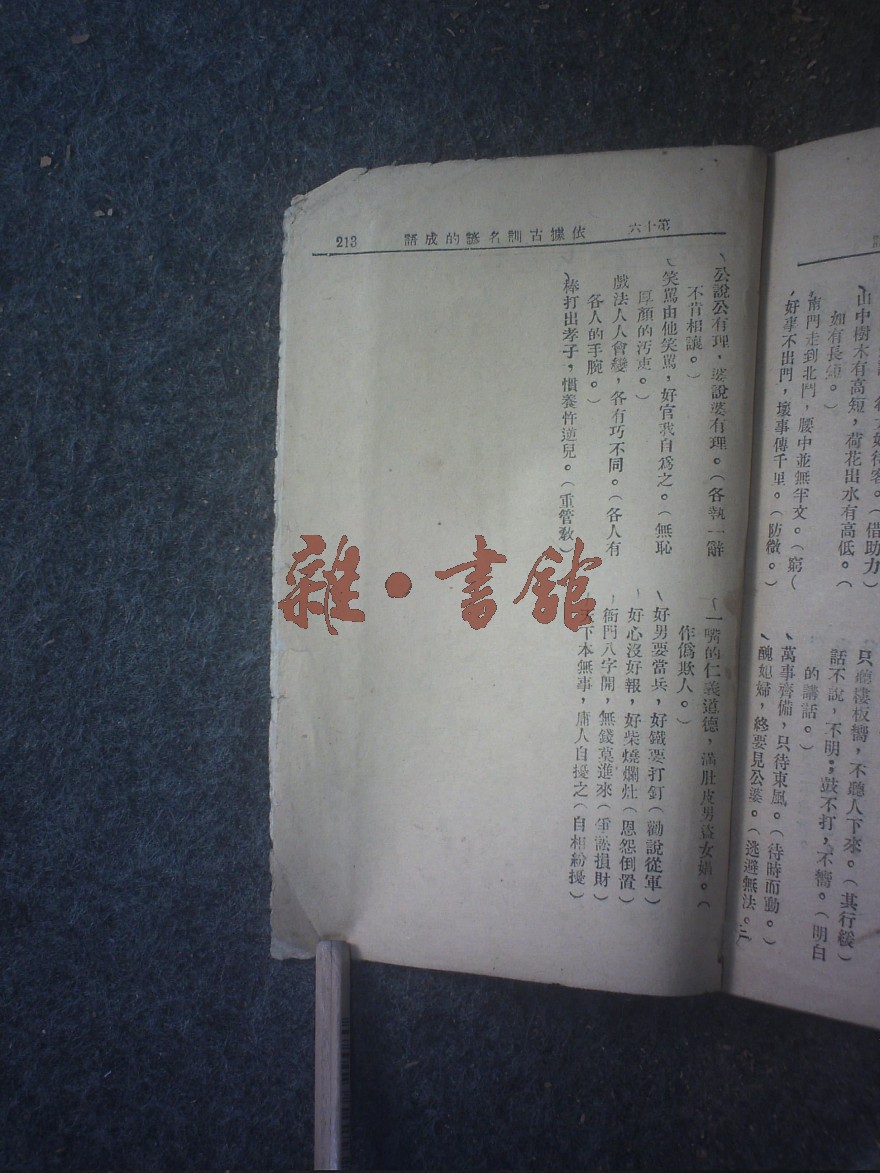 第十六 依據古訓名諺的成語 213
山中樹木有高短，荷花出水有高低。（
如有長短。）
南門走到北門，腰中並無半文。（窮（
好事不出門，壞事傳千里。（防微。）
只聽樓板響，不聽人下來。（其行緩）
話不說，不明；鼓不打，不響。（明白
的講話。）
萬事齊備，只待東風。（待時而動。）
醜媳婦，終要見公婆。（逃避無法。二
公說公有理，婆說婆有理。（各執一辭
不肯相讓。）
笑駡由他笑駡，好官我自爲之。（無恥
厚顏的汚吏。）
戲法人人會變，各有巧不同。（各人有
各人的手腕。）
棒打出孝子，慣養忤逆兒。（重管敎）
一嘴的仁義道德，滿肚皮男盜女娼。（
作僞欺人。）
好男要當兵，好鐵要打釘（勸說從軍）
好心沒好報，好柴燒爛灶（恩怨倒置）
衙門八字開，無錢莫進來（爭訟損財）
天下本無事，庸人自擾之（自相紛擾）
雜·書館